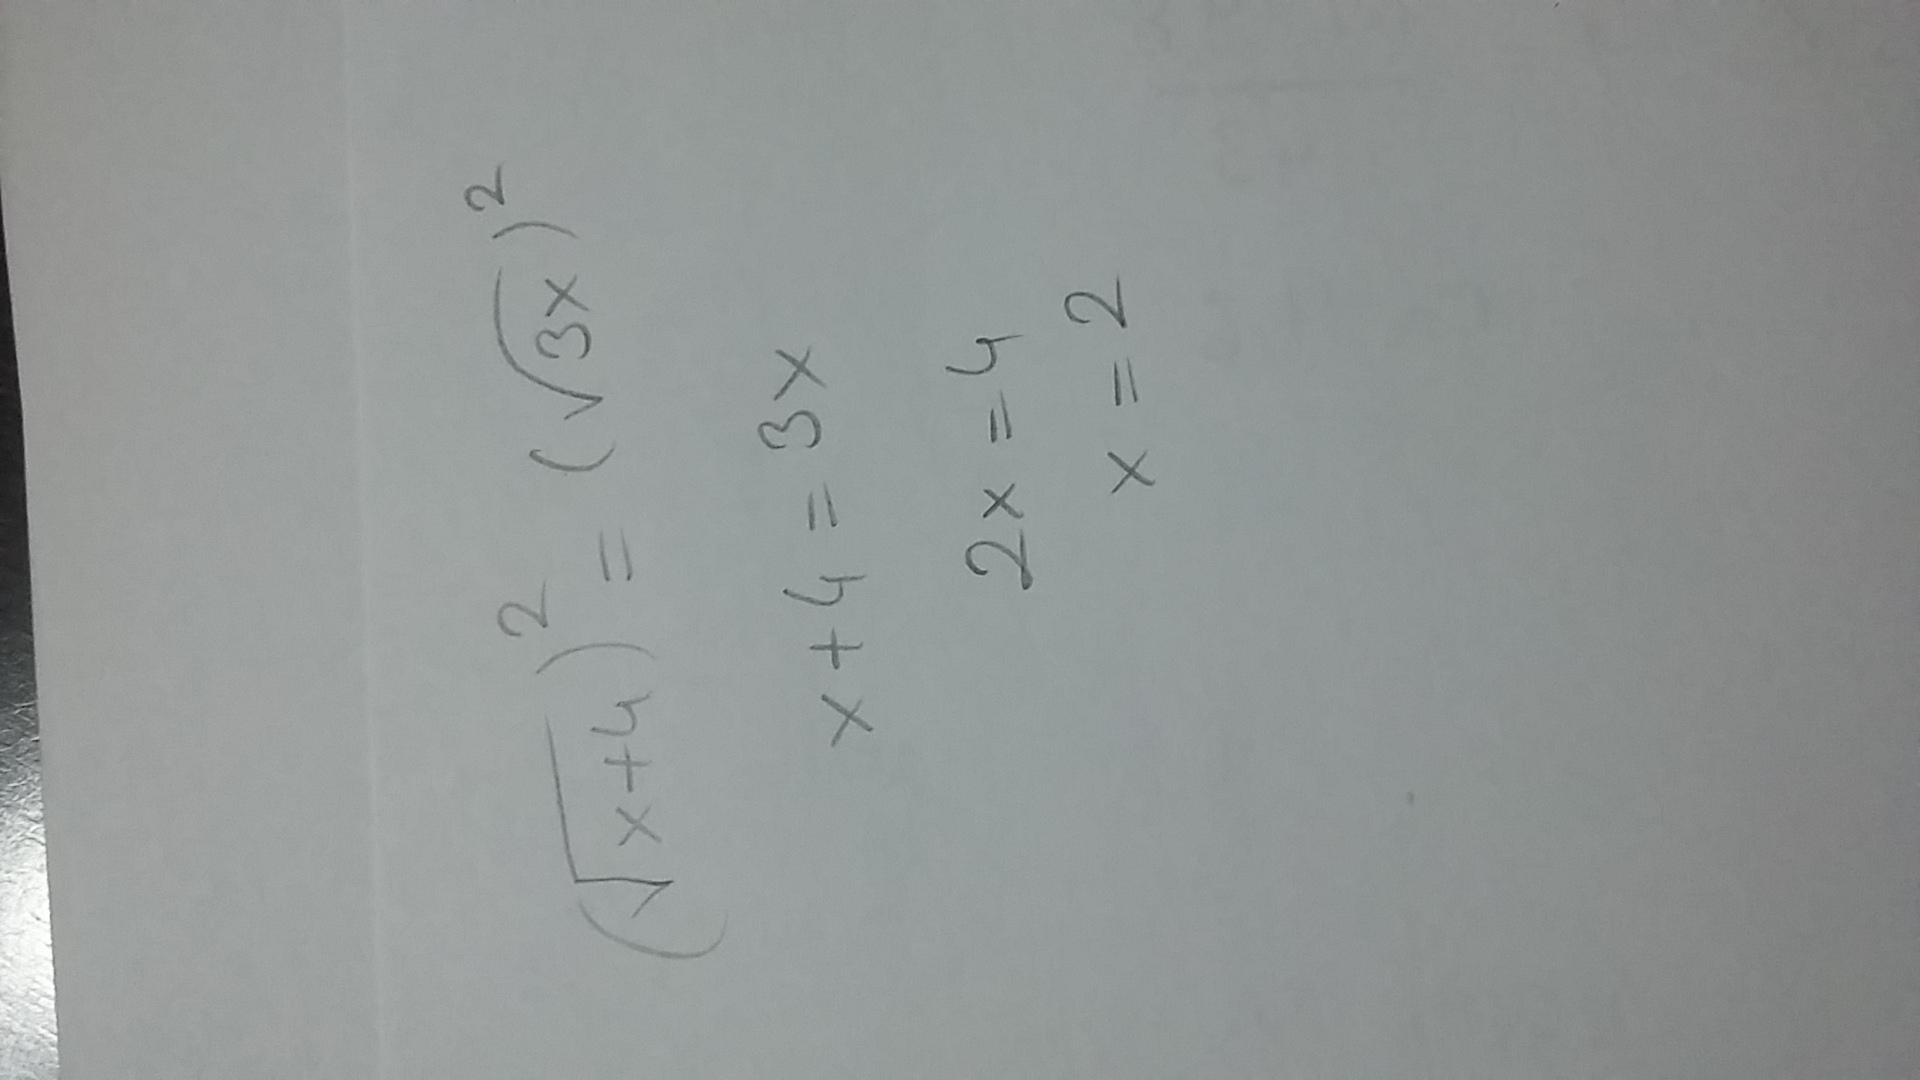 (√x+4)² = (√3x)²
x+4 = 3x
2x = 4
x = 2